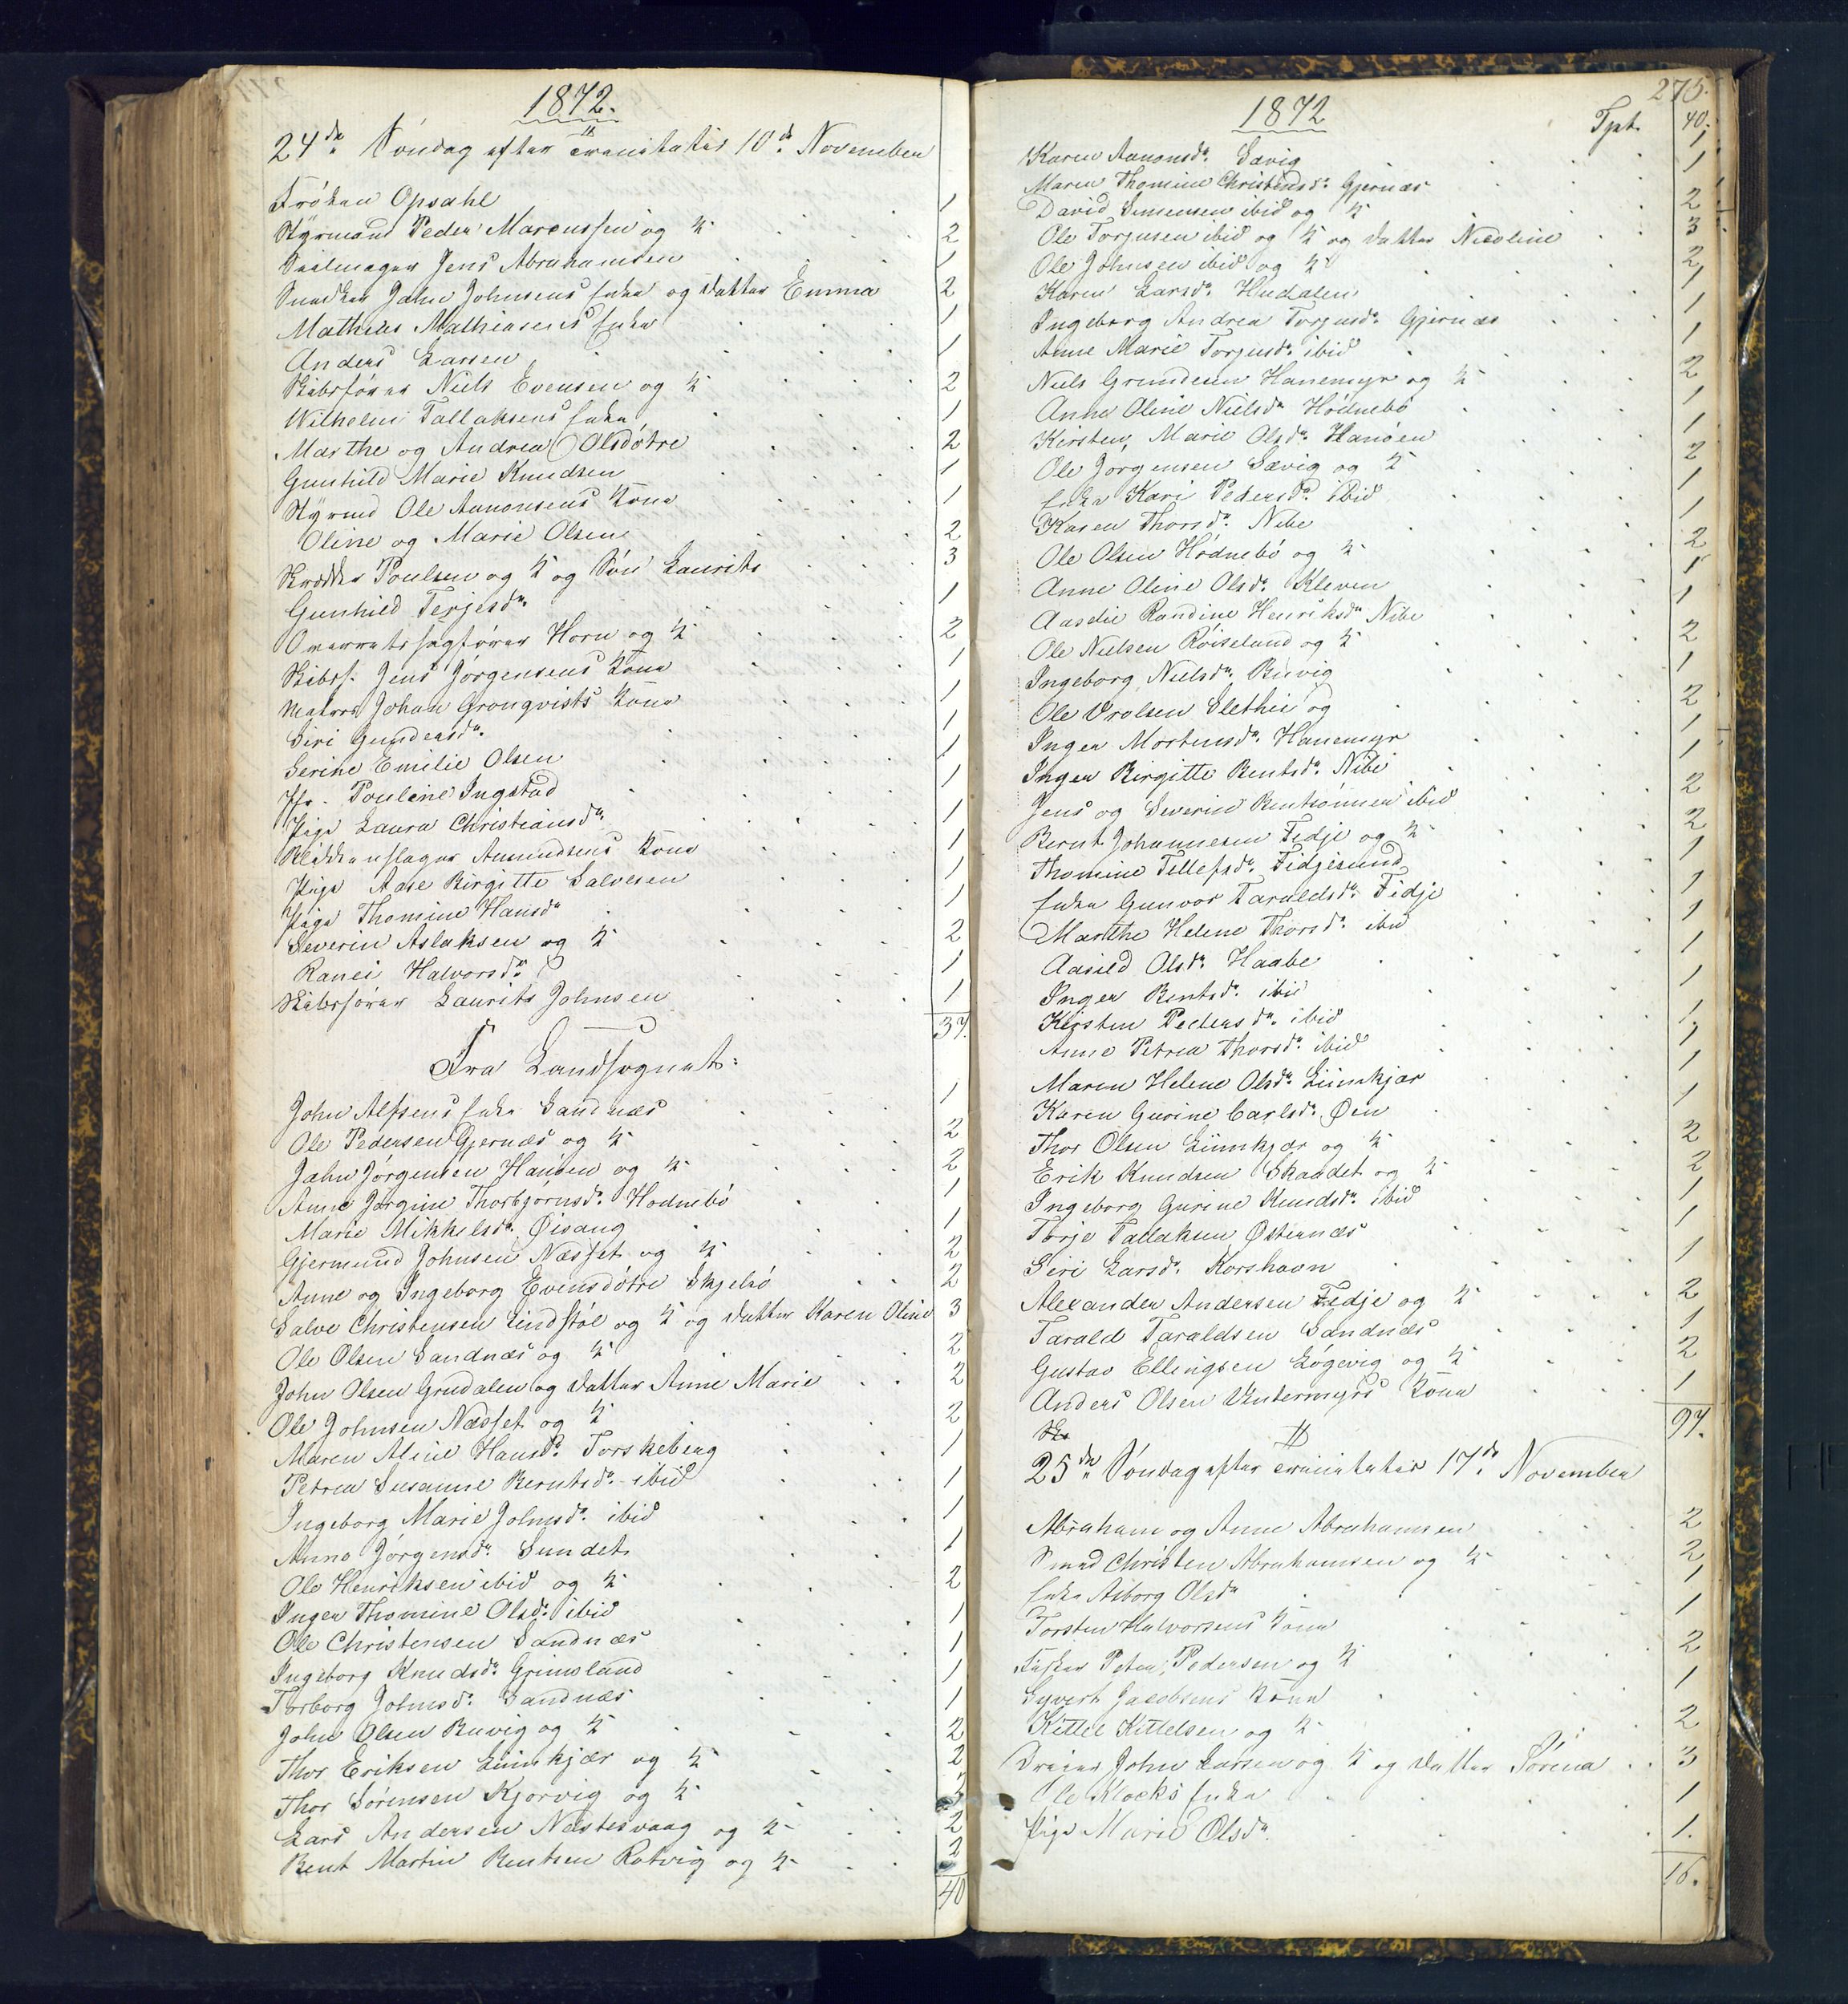 1872.
24de Søndag efter Trinitatis 10de November
Frøken Opsahl 1
Styrmand Peder Marcussen og K 2
Seilmager Jens Abrahamsen 1
Snedker Jahn Johnsens Enke og Datter Emma 2
Mathias Mathiasens Enke 1
Anders Larsen 1
Skibsfører Niels Evensen og K 2
Wilhelm Tallaksens Enke 1
Marthe og Andrea Olsdøtre 2
Gunhild Marie Knudsen 1
Styrmd Ole Aanonsens Kone 1
Oline og Marie Olsen 2
Skrædder Poulsen og K og Søn Laurits 3
Gunhild Terjesdr 1
Overretssagfører Horn og K 2
Skibsf. Jens Jørgensens Kone 1
Matros Johan Gronqvists Kone 1
Siri Gundersdr. 1
Serine Emilie Olsen 1
Jfr. Pouline Ingstad 1
Pige Laura Christiansdr. 1
Blikkenslager Amundsens Kone 1
Pige Aase Birgitte Salvesen 1
Pige Thomine Hansdr 1
Severin Aslaksen og K 2
Ranei Halvorsdr. 1
Skibsfører Laurits Johnsen 1
37.
Fra Landsognet:
John Alfsens Enke Sandnæs 1
Ole Pedersen Gjernæs og K 2
Jahn Jørgensen Hanøen og K 2
Anne Jørgine Thorbjørnsdr. Hødnebø 1
Marie Mikkelsdr. Øisang 1
Gjermund Johnsen Næsset og K 2
Anne og Ingeborg Evensdøtre Skjelsø 2
Salve Christensen Lindstøl og K og Datter Karen Oline 3
Ole Olsen Sandnæs og K 2
John Olsen Grudalen og Datter Anne Marie 2
Ole Johnsen Næsset og K 2
Maren Aline Hansdr. Torskeberg 1
Petrea Susanne Berntsdr. ibid 1
Ingeborg Marie Johnsdr. ibid 1
Anne Jørgensdr. Sundet 1
Ole Henriksen ibid og K 2
Inger Thomine Olsdr. ibid 1
Ole Christensen Sandnæs 1
Ingeborg Knudsdr. Grimsland 1
Torborg Johnsdr. Sandnæs 1
John Olsen Buvig og K 2
Thor Eriksen Liinkjær og K 2
Thor Sørensen Kjørvig og K 2
Lars Andersen Næstesvaag og K 2
Bent Martin Bentsen Ratvig og K 2
40
275.
1872
Tpt. 40.
Karen Aanonsdr. Sævig 1
Maren Thomine Christensdr. Gjernæs 1
David Jensensen ibid og K 2
Ole Torjusen ibid og K og Datter Nicoline 3
Ole Johnsen ibid og K 2
Karen Larsdr. Hudalen 1
Ingeborg Andrea Torjusdr. Gjernæs 1
Anne Marie Torjusdr. ibid 1
Niels Gundersen Hanemyr og K 2
Anne Oline Nielsdr. Hødnebø 1
Kirsten Marie Olsdr. Hanøen 1
Ole Jørgensen Sævig og K 2
Enke Kari Pedersdr. ibid 1
Karen Thorsdr. Nebe 1
Ole Olsen Hødnebø og K 2
Anne Oline Olsdr. Kleven 1
Aasdie Randine Henriksdr Nibe 1
Ole Nielsen Røiseland og K 2
Ingeborg Nielsdr. Buvig 1
Ole Vrolsen Slethei og 2
Inger Mortensdr. Hanemyr 1
Inger Birgitte Bentsdr. Nibe 1
Jens og Severin Bentsønner ibid 2
Bernt Johannesen Fidje og K 2
Thomine Tellefsdr. Fidjesund 1
Enke Gunvor Taraldsdr. Fidje 1
Marthe Helene Thorsdr. ibid 1
Aasild Olsdr. Haabe 1
Inger Bentsdr. ibid 1
Kirsten Pedersdr. ibid 1
Anne Petrea Thorsdr. ibid 1
Maren Helene Olsdr. Liinkjær 1
Karen Gurine Carlsdr. Øen 1
Thor Olsen Liinkjær og K 2
Erik Knudsen Skaadet og K 2
Ingeborg Gurine Knudsdr. ibid 1
Torje Tallaksen Østernæs 1
Siri Larsdr. Korshavn 1
Alexander Andersen Fidje og K 2
Tarald Taraldsen Sandnæs 1
Gustav Ellingsen Løgevig og K 2
Anders Olsen Vintermyrs Kone 1
97.
25de Søndag efter Trinitatis 17de November
Abraham og Anne Abrahamsen 2
Smed Christen Abrahamsen og K 2
Enke Asborg Olsdr 1
Torsten Halvorsens Kone 1
Fisker Peter Pedersen og K 2
Syvert Jacobsens Kone 1
Kittel Kittelsen og K 2
Dreier John Larsen og K og Datter Sørine 3
Ole Klocks Enke 1
Pige Marie Olsdr. 1.
16.